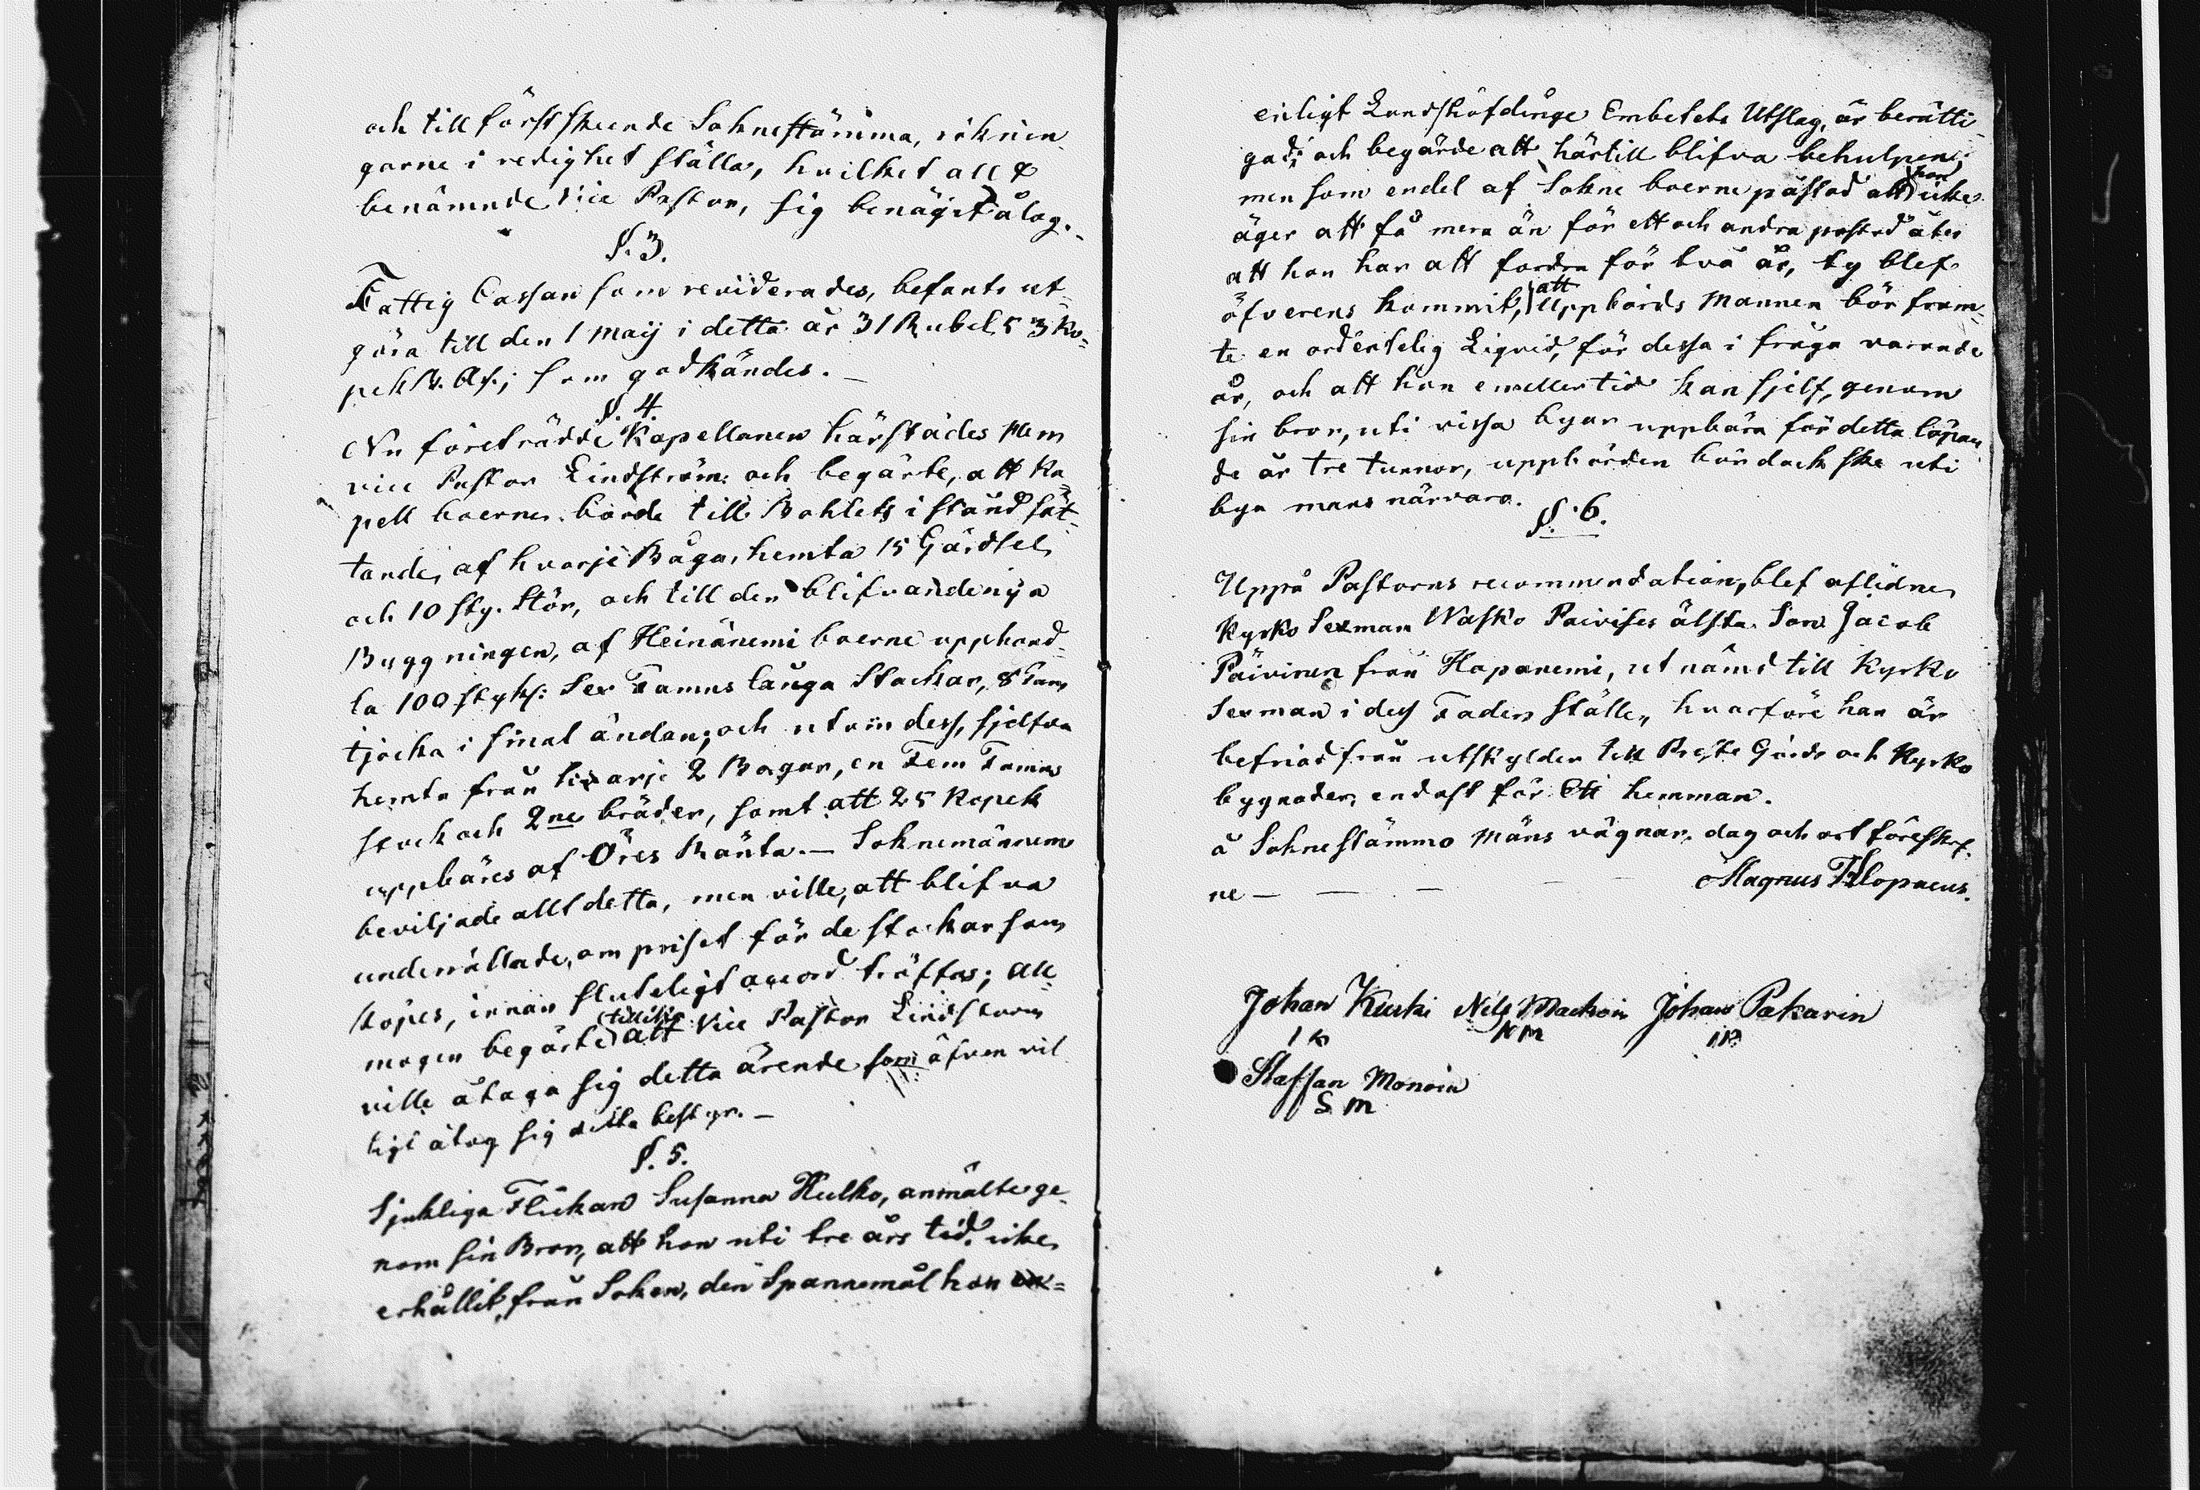 och till först skeende Sokne stämma, räknin
garne i redighet ställa, hvilket allt
benämnde vice Pastor, sig benäget åtog. -
§. 3.
Fattig Cassan som reviderades, befants ut-
göra till den 1 Maij i detta år 31 Rubel 53 Ko-
pek som godkändes. -
§. 4.
Nu företrädde Kapellanen härstädes
vice Pastor Lindström, och begärte, att Ka
pell boerne borde till Bohlets i stånd sät-
tande, af hvarje Båga, hemta 15 Gärdsel
och 10 sty. Stör, och till den blifvande nya
Byggningen, af Heinänemi boerne upphand-
la 100 styks: Sex Famns långa Stockar, 8 Tum
tjocka i smal ändan; och utom dess, sjelfva
hemta från hvarje 2 Bågar, en Fem Famns
stock och 2ne bräder, samt att 25 Kopek
uppbäres af Öres Ränta. - Sokne männerne
beviljade allt detta, men ville, att blifva
underrättade, om priset för de stockar som
köpes, innan sluteligt accord träffas; All
mogen begärte tillika att Vice Pastor Lindström
ville åtaga sig detta ärende som äfven vil
ligt åtog sig detta bestyr. -
§. 5.
Sjukliga Flickan Susanna Hulko, anmälte ge
nom sin Bror, att hon uti tre års tid, icke
erhållit från Soken, den Spannemål hon
enligt Landshöfdinge Embetets Utslag, är berätti-
gad; och begärde att härtill blifva behulpen;
men som endel af Sokne boerne påstod att hon icke
äger att få mera än för ett och andra påstod åter
att hon har att fordra för två år, ty blef
öfverens kommit, att Uppbörds Mannen bör fram-
te en ordentelig Liqvid, för dessa i fråga varande
år, och att hon emellertid kan sjelf, genom
sin bror, uti vissa byar uppbära för detta löpan
de år tre tunnor, uppbörden bör dock ske uti
bya mans närvaro.
§. 6.
Uppå Pastorns recommendation, blef aflidne
Kyrko Sexman Wasko Paivises älsta Son Jacob
Päivinen från Haponemi, utnämd till Kyrko
Sexman i dess Faders ställe, hvarföre han är
befriad från utskylder till Preste Gårds och Kyrko
bygnader, endast för Ett hemman.
å Sokne stämmo Mäns vägnar, dag och ort föreskrf.
ne - - - - - Magnus Alopaeus.
Johan Kuski Nils Mackoin Johan Pakarin
I K N M I P
Staffan Monoin
S M